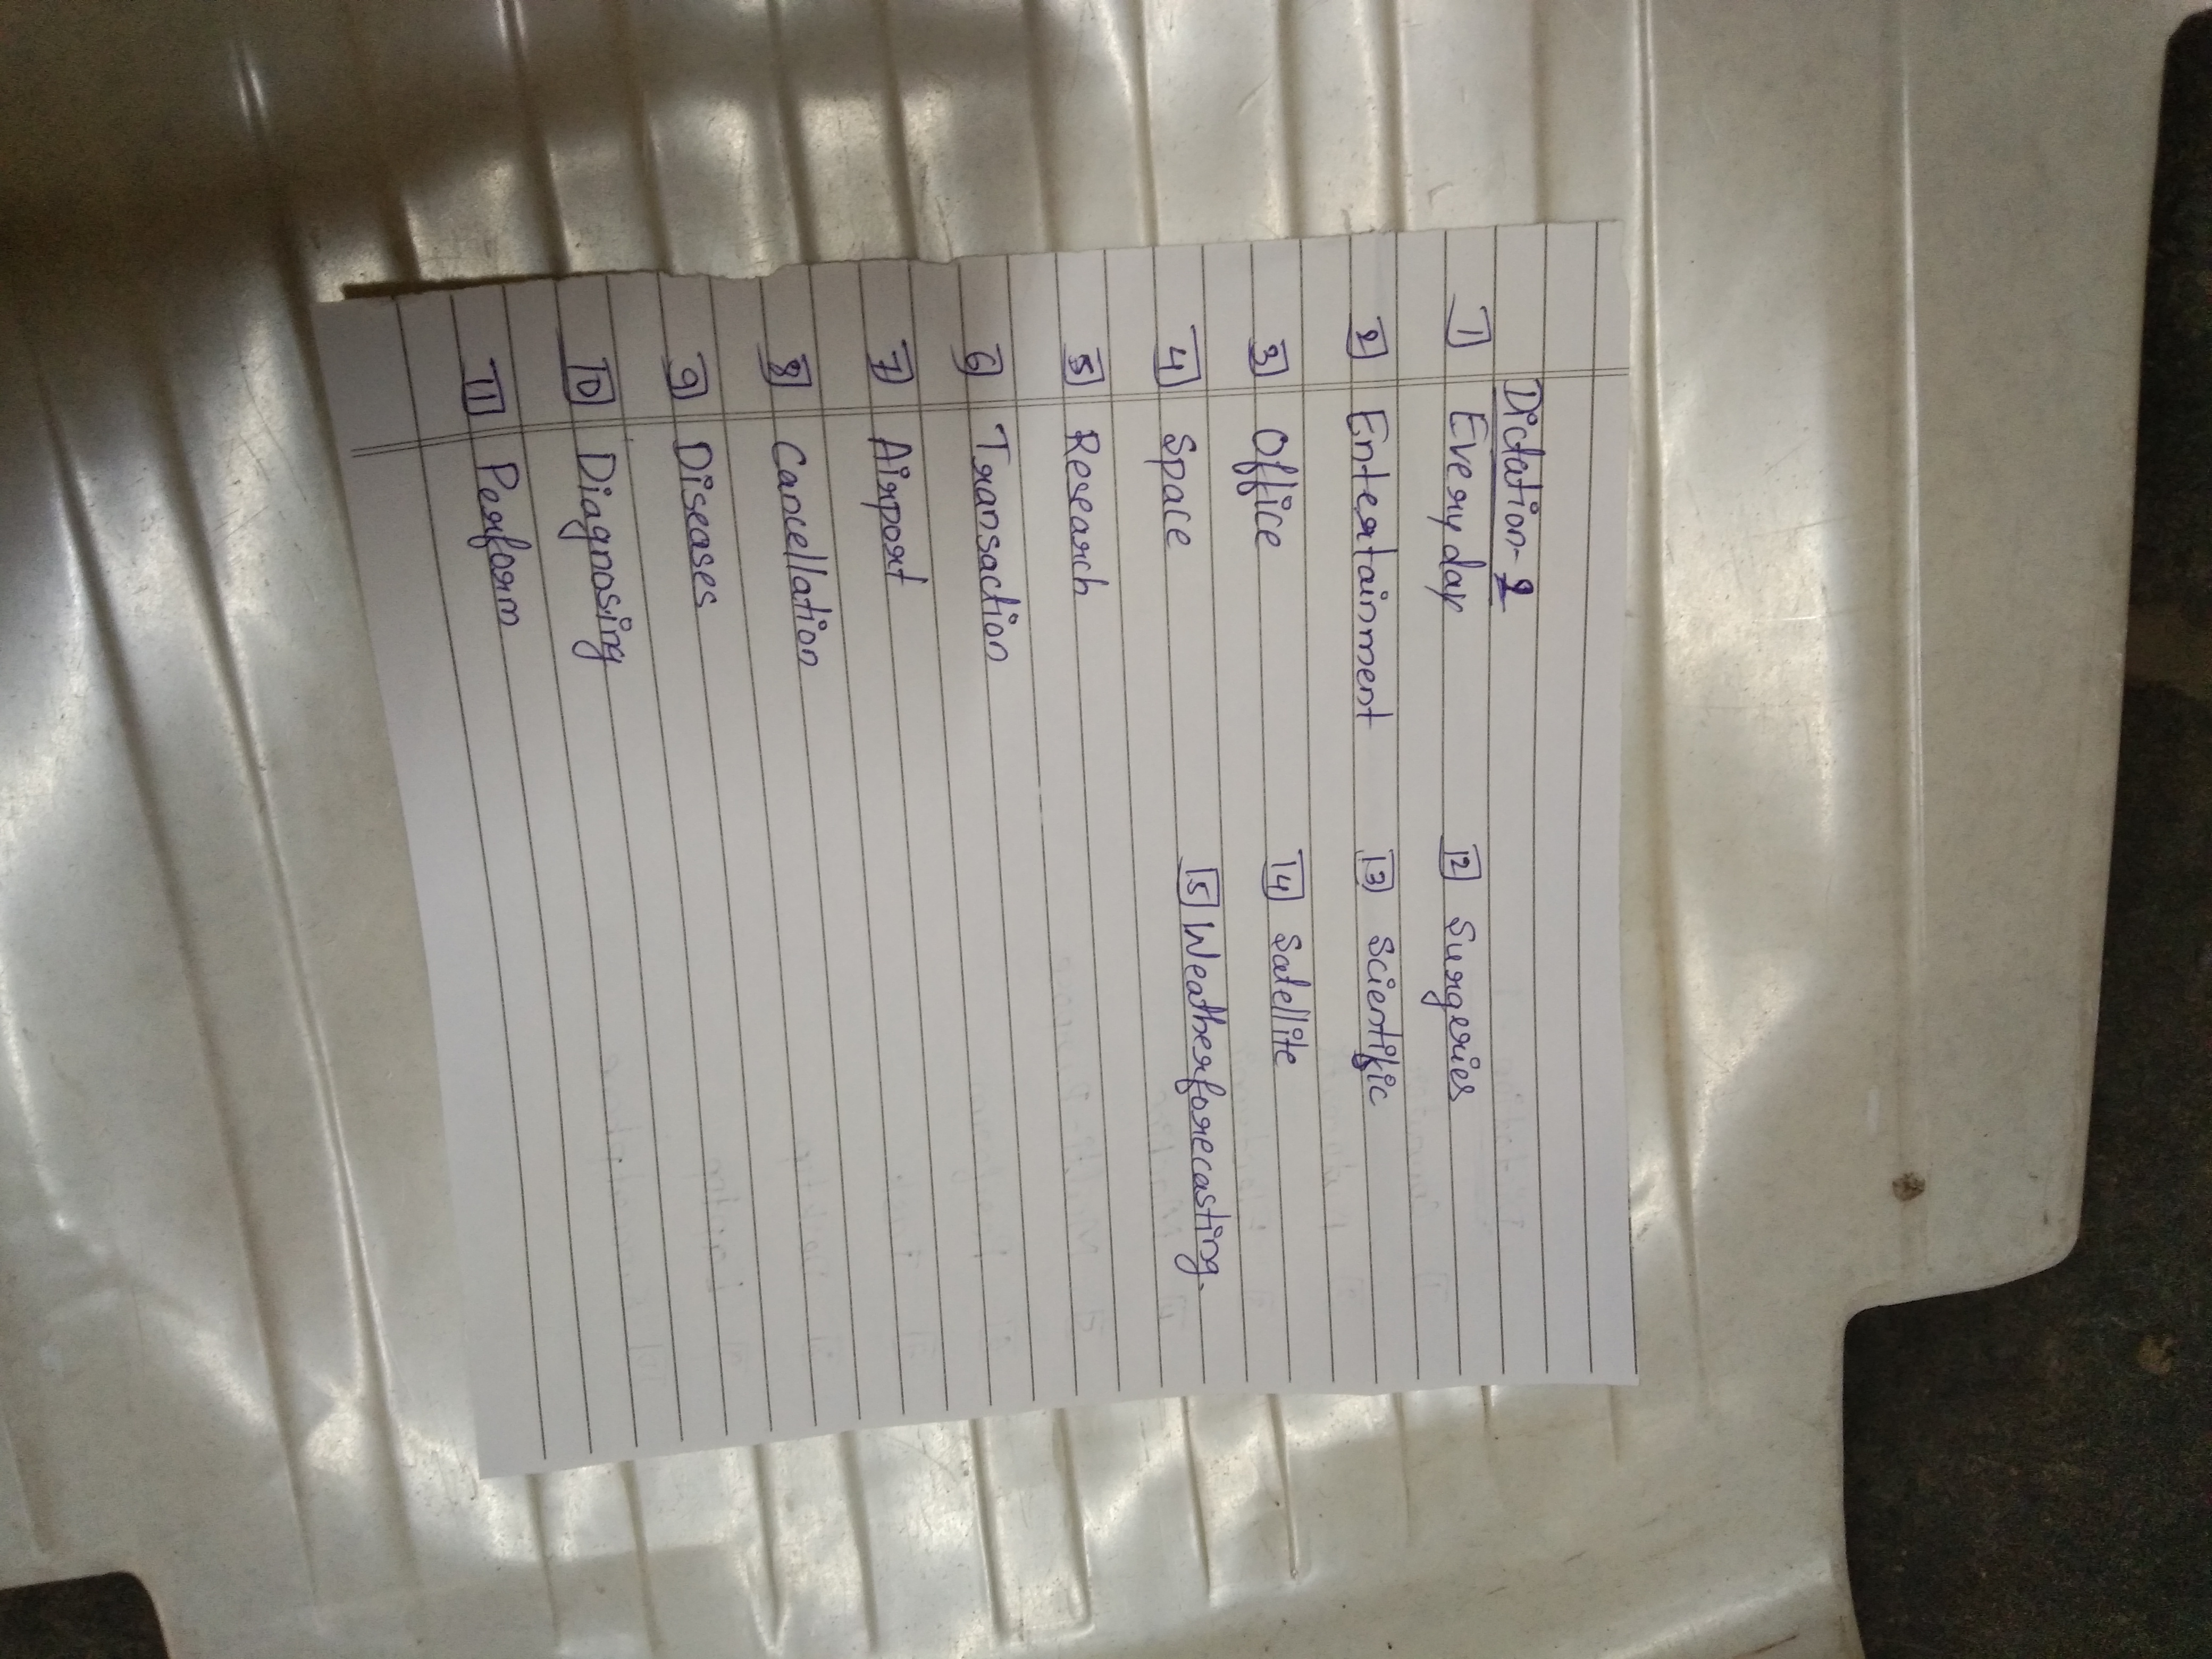 Dictation-2
1 Everyday
2 Entertainment
3 Office
4 Space
5 Research
6 Transaction
7 Airport
8 Cancellation
9 Diseases
10 Diagnosing
11 Perform
12 Surgeries
13 Scientific
14 Satellite
15 Weatherforecasting.